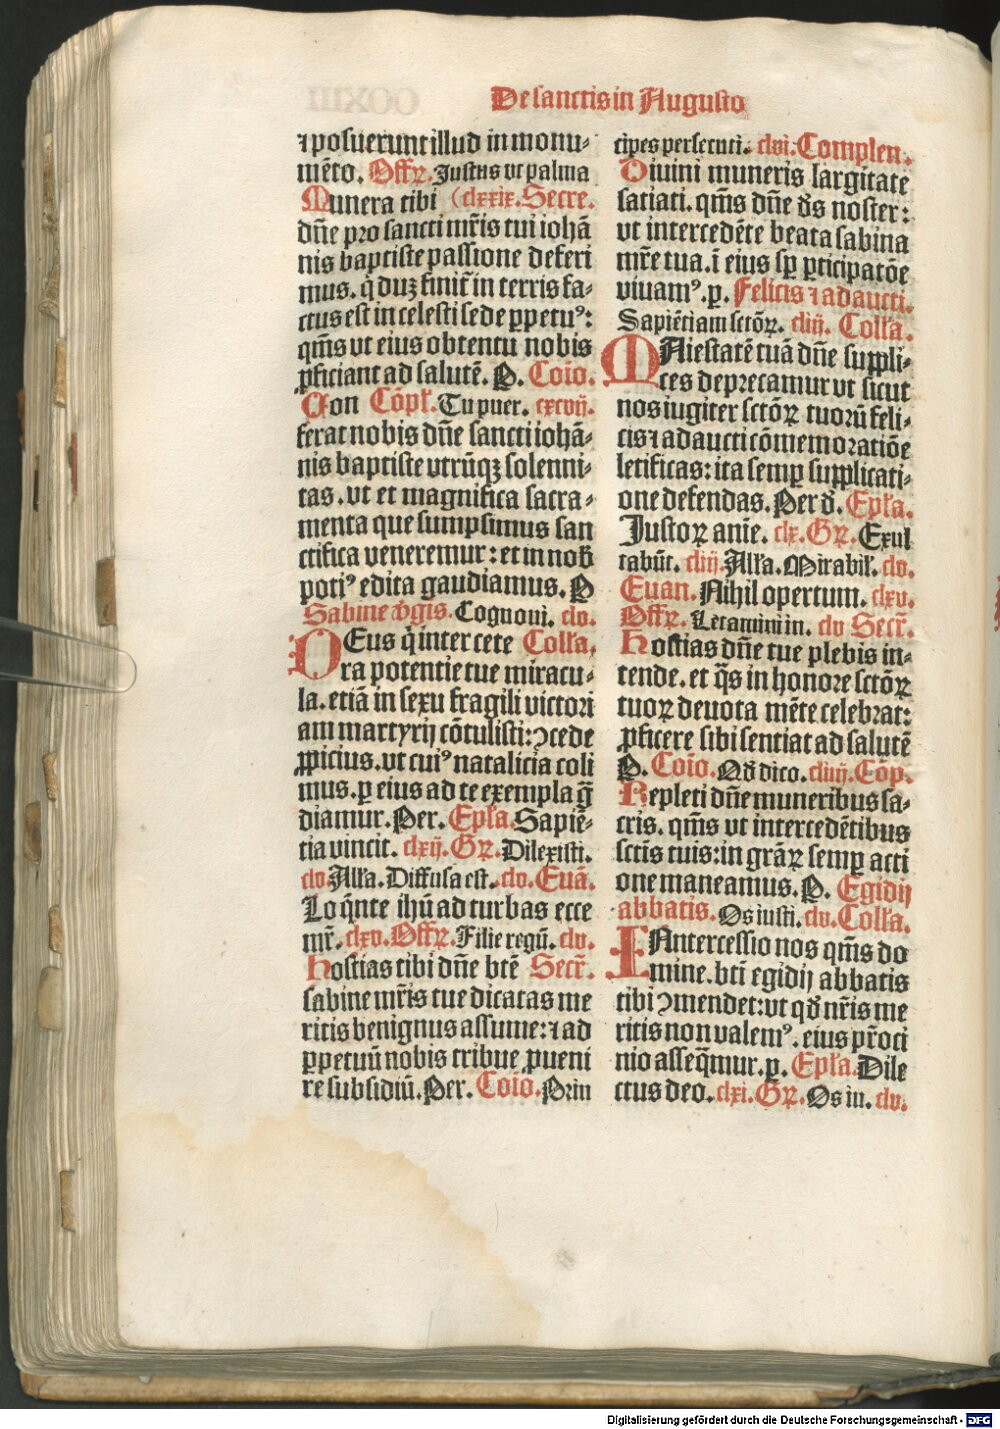 De sanctis in Augusto
⁊ posuerunt illud in monu-
mēto. Offꝝ. Justus vt palma
Munera tibi (clxxix. Secre.
dn̄e pro sancti mr̄is tui iohā
nis baptiste passione deferi
mus. q̇ duʒ finit̄ in terris fa-
ctus est in celesti sede ꝑpetuꝰ:
qm̄s vt eius obtentu nobis
ꝓficiant ad salutē. P. Coīo.
Con Cōpl̄. Tu puer. cxcvij.
ferat nobis dn̄e sancti iohā-
nis baptiste vtrūqꝫ solenni-
tas. vt et magnifica sacra-
menta que sumpsimus san
ctifica veneremur: et in nob̄
potiꝰ edita gaudiamus. P
Sabine v̄gis. Cognoui. clv.
DEus q̇ inter cete Coll̄a.
ra potentie tue miracu-
la. etiā in sexu fragili victori
am martyrij cōtulisti: ꝯcede
ꝓpicius. vt cuiꝰ natalicia coli
mus. ꝑ eius ad te exempla ḡ
diamur. Per. Epl̄a. Sapiē-
tia vincit. clxij. Gꝝ. Dilexisti.
clv. All̄a. Diffusa est. clv. Euā.
Loq̄nte ihū ad turbas ecce
mr̄. clxv. Offꝝ. Filie regū. clv.
Hostias tibi dn̄e btē Secr̄.
sabine mr̄is tue dicatas me
ritis benignus assume: ⁊ ad
ꝑpetuū nobis tribue ꝓueni
re subsidiū. Per. Coīo. Prin
cipes persecuti. clvi. Complen.
Diuini muneris largitate
satiati. qm̄s dn̄e d̄s noster:
vt intercedēte beata sabina
mr̄e tua. ī eius sꝑ ꝑticipatōe
viuamꝰ. p. Felicis ⁊ adaucti.
Sapiētiam sctōꝝ. cliij. Coll̄a.
MAiestatē tuā dn̄e suppli-
ces deprecamur vt sicut
nos iugiter sctōꝝ tuorū feli-
cis ⁊ adaucti cōmemoratiōe
letificas: ita semꝑ supplicati-
one defendas. Per d̄. Epl̄a.
Justoꝝ anīe. clx. Gꝝ. Exul
tabūt. cliij. All̄a. Mirabil̄. clv.
Euan. Nihil opertum. clxv.
Offꝝ. Letamini in. clv Secr̄.
Hostias dn̄e tue plebis in-
tende. et q̄s in honore sctōꝝ
tuoꝝ deuota mēte celebrat:
ꝓficere sibi sentiat ad salutē
P. Coīo. Qd̄ dico. cliiij. Cōp.
Repleti dn̄e muneribus sa-
cris. qm̄s vt intercedētibus
sctīs tuis: in grāꝝ semꝑ acti
one maneamus. P. Egidij
abbatis. Os iusti. clv. Coll̄a.
INtercessio nos qm̄s do
mine. btī egidij abbatis
tibi ꝯmendet: vt qd̄ nr̄is me
ritis non valemꝰ. eius pr̄oci
nio asseq̄mur. p. Epl̄a. Dile
ctus deo. clxi. Gꝝ. Os iu. clv.
Digitalisierung gefördert durch die Deutsche Forschungsgemeinschaft - DFG